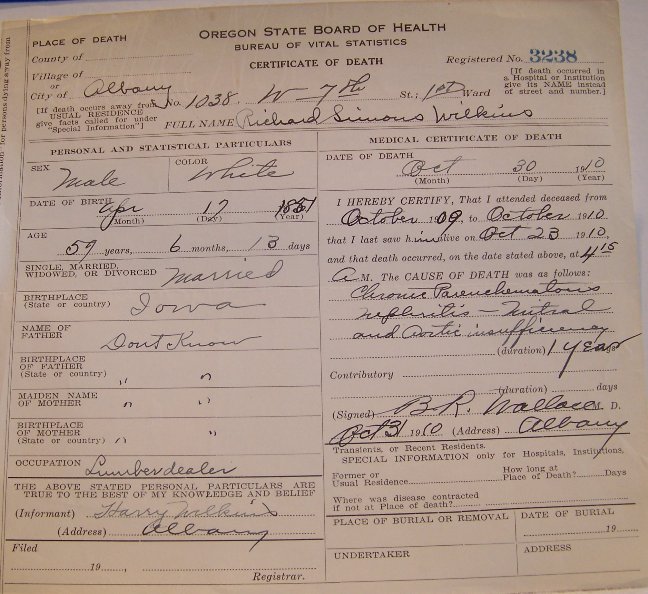 OREGON STATE BOARD OF HEALTH
BUREAU OF VITAL STATISTICS
CERTIFICATE OF DEATH
Registered No. 3238
PLACE OF DEATH
County of
Village of
or
City of Albany No. 1038 W 7th St.; 1st Ward
[If death occurred in a Hospital or Institution give its NAME instead of street and number.]
[If death occurs away from USUAL RESIDENCE give facts called for under "Special Information"]
FULL NAME Richard Simons Wilkins
PERSONAL AND STATISTICAL PARTICULARS
SEX Male
COLOR White
DATE OF BIRTH Apr 17 1851
(Month) (Day) (Year)
AGE
59 years, 6 months, 13 days
SINGLE, MARRIED, WIDOWED, OR DIVORCED Married
BIRTHPLACE
(State or country) Iowa
NAME OF FATHER Dont Know
BIRTHPLACE OF FATHER
(State or country) " "
MAIDEN NAME OF MOTHER " "
BIRTHPLACE OF MOTHER
(State or country) " "
OCCUPATION Lumber dealer
THE ABOVE STATED PERSONAL PARTICULARS ARE
TRUE TO THE BEST OF MY KNOWLEDGE AND BELIEF
(Informant) Harry Wilkins
(Address) Albany
Filed
19
Registrar.
MEDICAL CERTIFICATE OF DEATH
DATE OF DEATH
Oct 30 1910
(Month) (Day) (Year)
I HEREBY CERTIFY, That I attended deceased from
October 1909, to October 1910
that I last saw him alive on Oct 23 1910,
and that death occurred, on the date stated above, at 4 15
A. M. The CAUSE OF DEATH was as follows:
Chronic Parenchematous
nephritis - Mitral
and Aortic insufficiency
(duration) 1 year
Contributory
(duration) days
(Signed) B. R. Wallace M. D.
Oct 31 1910 (Address) Albany
Transients, or Recent Residents.
SPECIAL INFORMATION only for Hospitals, Institutions,
Former or
Usual Residence
How long at
Place of Death? Days
Where was disease contracted
if not at Place of death?
PLACE OF BURIAL OR REMOVAL
DATE OF BURIAL
19
UNDERTAKER
ADDRESS